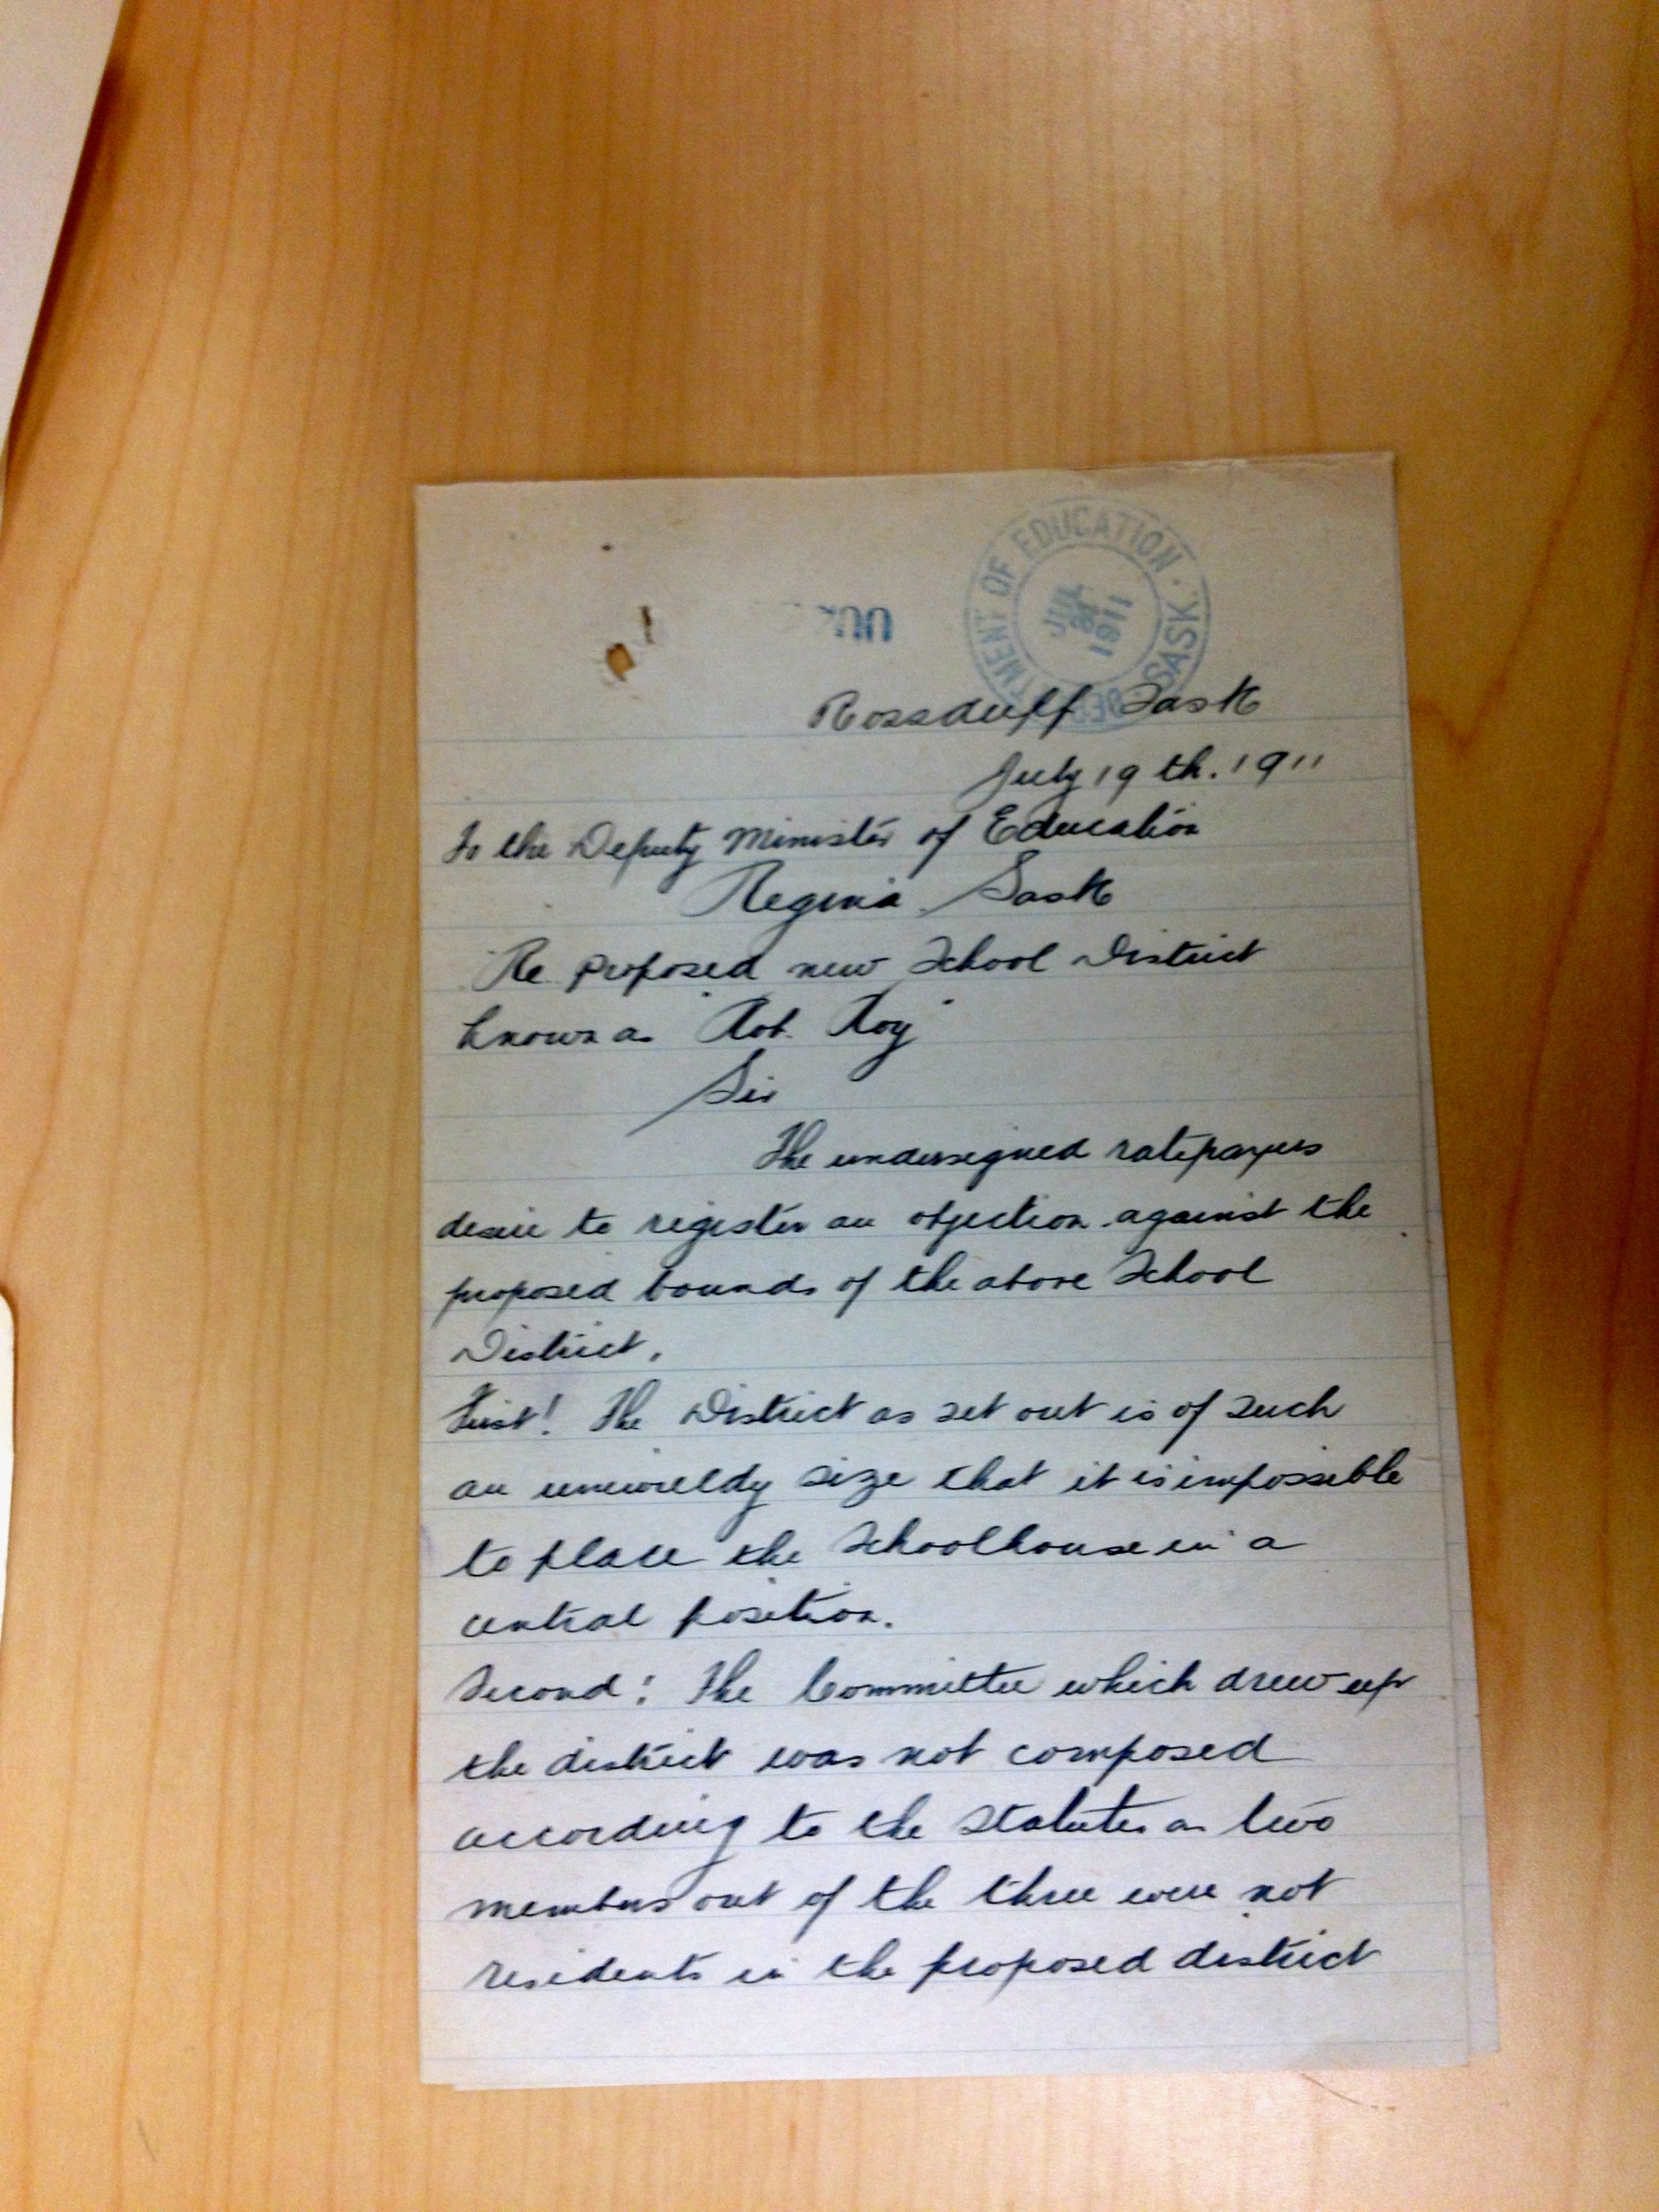 DEPARTMENT OF EDUCATION · SASK ·
JUL
1911
Rossduff Sask
July 19th. 1911
To the Deputy Minister of Education
Regina Sask
Re proposed new School District
known as "Rob. Roy"
Sir
The undersigned ratepayers
desire to register an objection against the
proposed bounds of the above School
District.
First! The District as set out is of such
an unwieldy size that it is impossible
to place the Schoolhouse in a
central position.
Second! The Committee which drew up
the district was not composed
according to the Statutes as two
members out of the three were not
residents in the proposed district